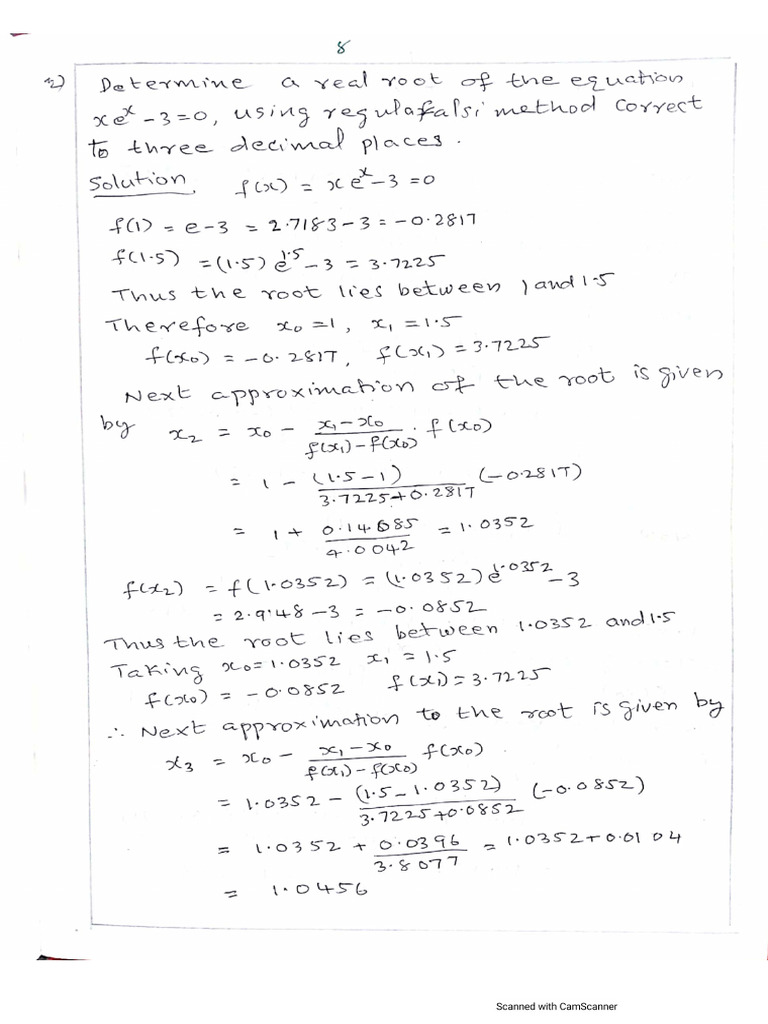 8
2) Determine a real root of the equation
xe^x - 3 = 0, using regulafalsi method correct
to three decimal places.
Solution, f(x) = x e^x - 3 = 0
f(1) = e - 3 = 2.7183 - 3 = -0.2817
f(1.5) = (1.5) e^1.5 - 3 = 3.7225
Thus the root lies between 1 and 1.5
Therefore x₀ = 1, x₁ = 1.5
f(x₀) = -0.2817, f(x₁) = 3.7225
Next approximation of the root is given
by x₂ = x₀ - (x₁ - x₀)/(f(x₁) - f(x₀)) . f(x₀)
= 1 - (1.5 - 1)/(3.7225 + 0.2817) (-0.2817)
= 1 + 0.14085/4.0042 = 1.0352
f(x₂) = f(1.0352) = (1.0352) e^1.0352 - 3
= 2.9148 - 3 = -0.0852
Thus the root lies between 1.0352 and 1.5
Taking x₀ = 1.0352 x₁ = 1.5
f(x₀) = -0.0852 f(x₁) = 3.7225
∴ Next approximation to the root is given by
x₃ = x₀ - (x₁ - x₀)/(f(x₁) - f(x₀)) f(x₀)
= 1.0352 - (1.5 - 1.0352)/(3.7225 + 0.0852) (-0.0852)
= 1.0352 + 0.0396/3.8077 = 1.0352 + 0.0104
= 1.0456
Scanned with CamScanner